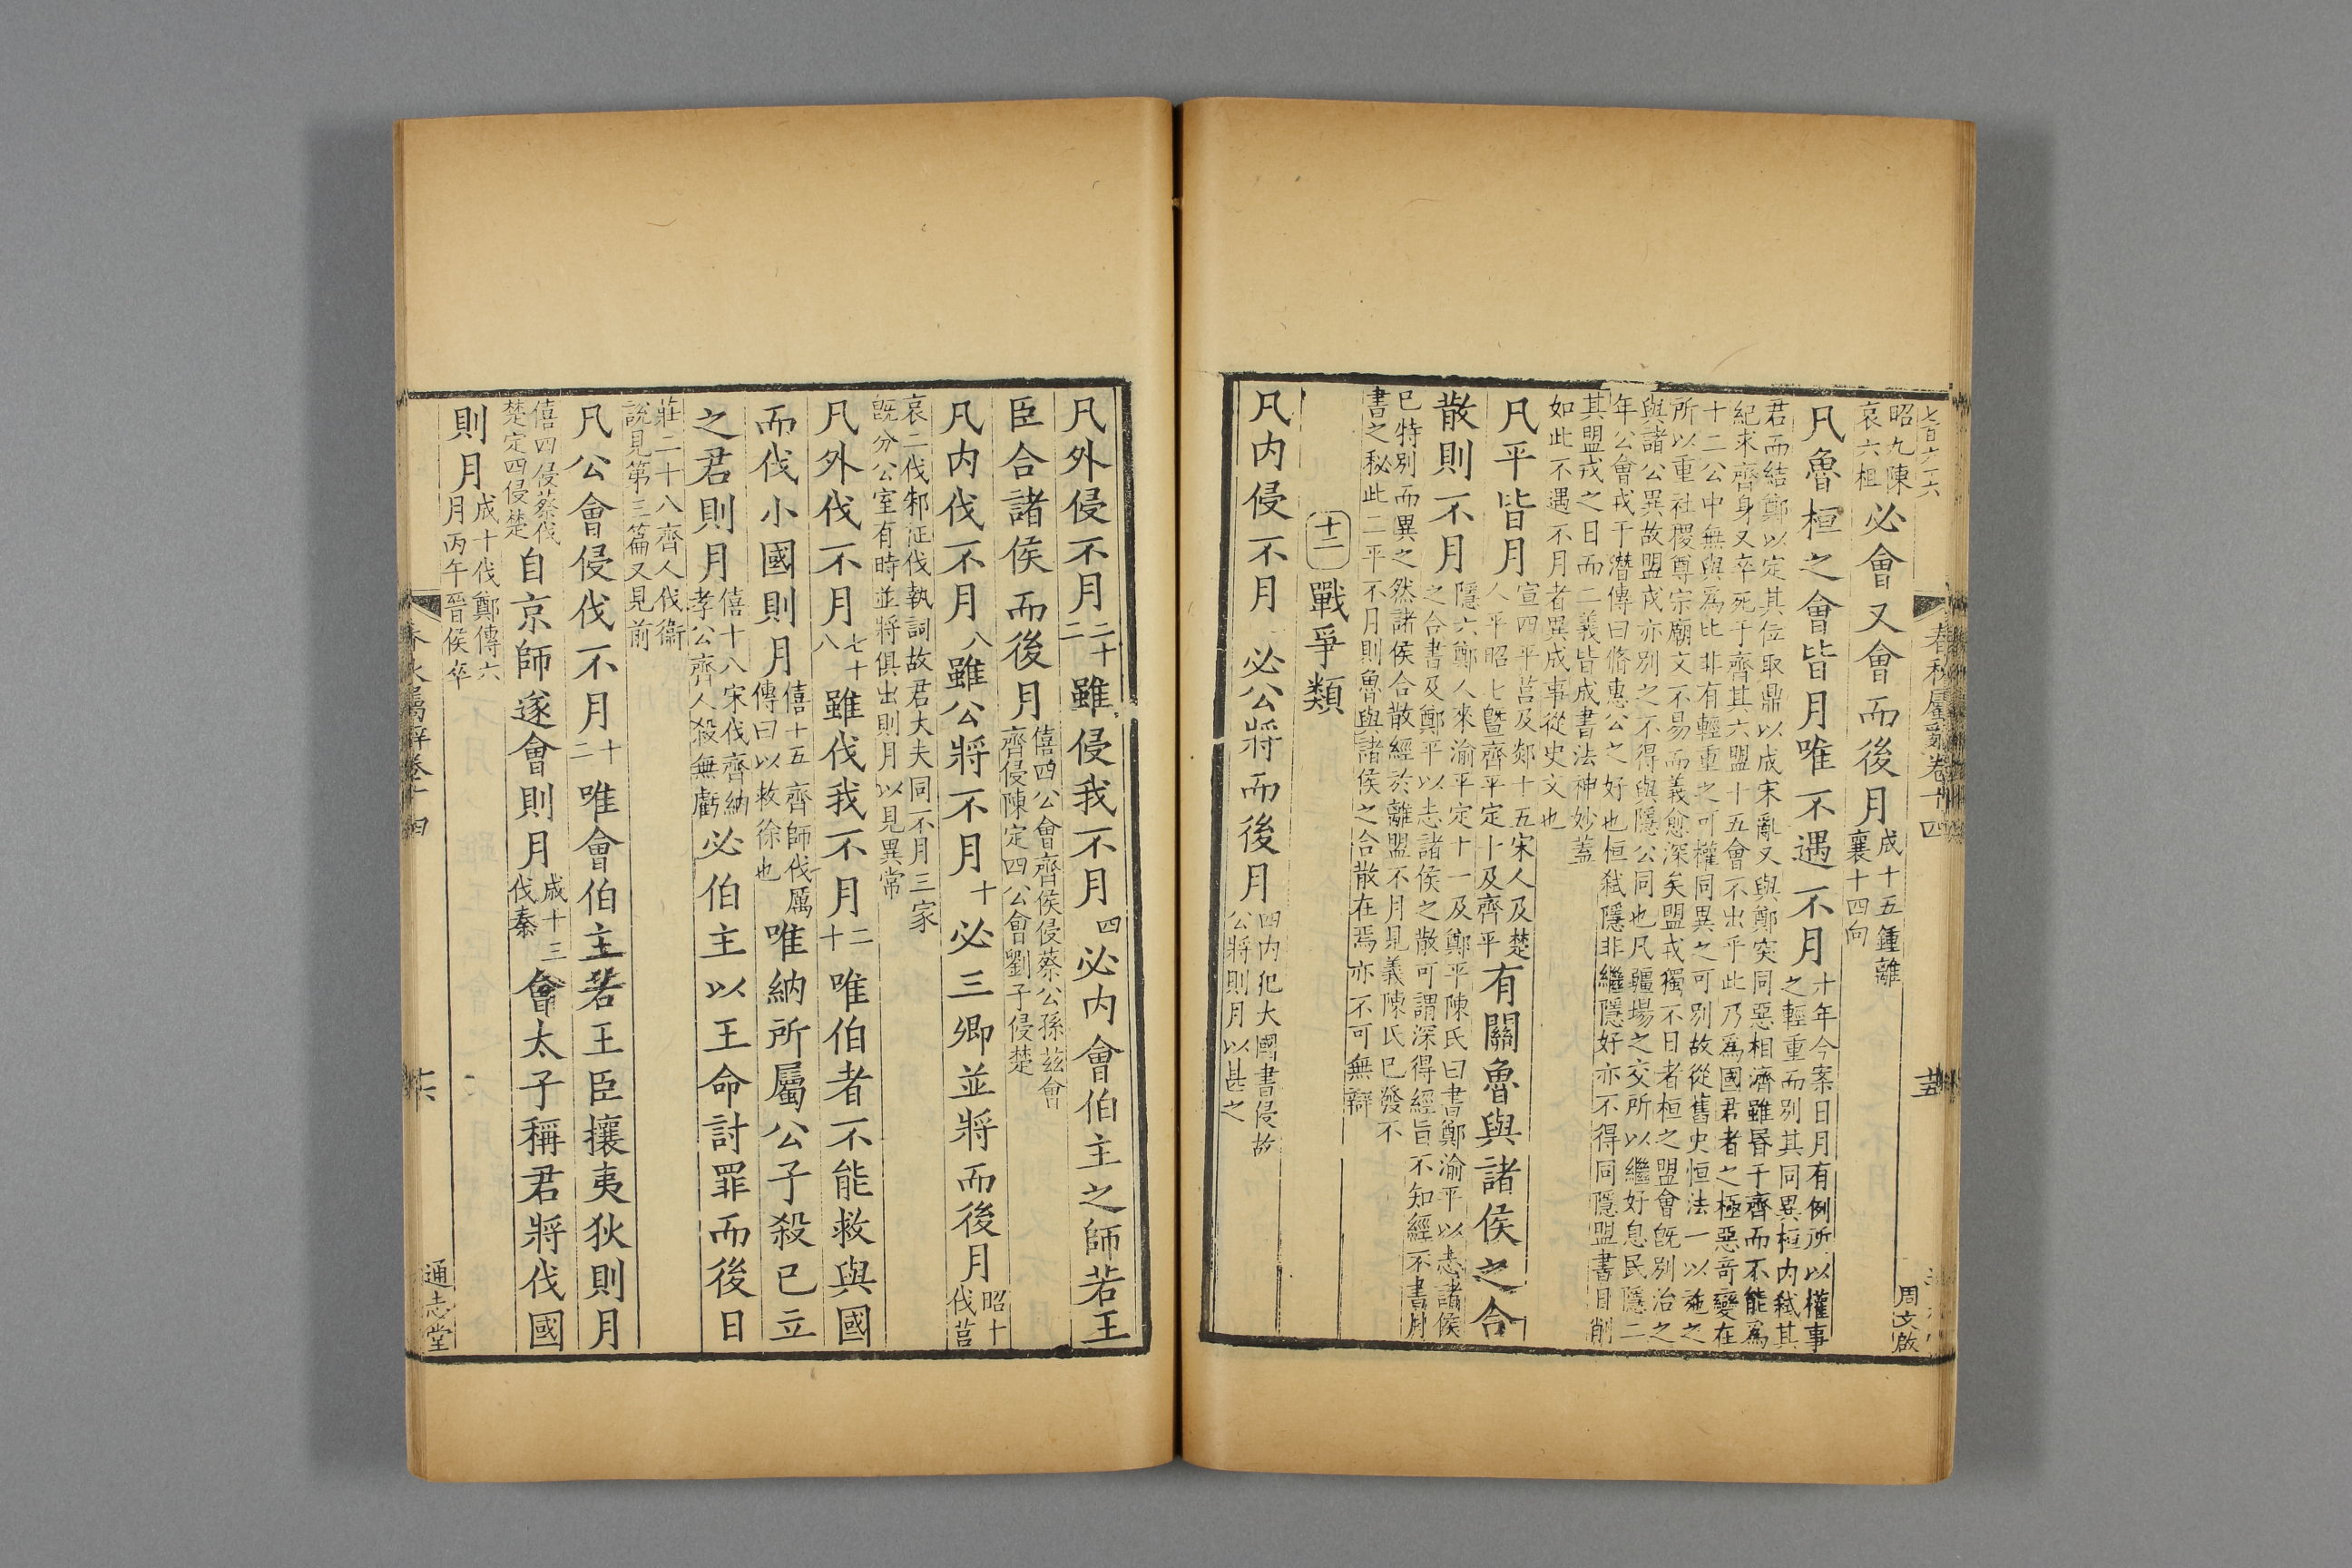 七百六六
春秋屬辭卷十四
五
周文啟
昭九陳
哀六柤
必會又會而後月
成十五鍾離
襄十四向
凡魯桓之會皆月唯不遇不月
十年今案日月有例所以權事
之輕重而別其同異桓內弑其
君而結鄭以定其位取鼎以成宋亂又與鄭突同惡相濟雖昏于齊而不能爲
紀求齊身又卒死于齊其六盟十五會不出乎此乃爲國君者之極惡奇變在
十二公中無與爲比非有輕重之可權同異之可別故從舊史恒法一以施之
所以重社稷尊宗廟文不易而義愈深矣盟戎獨不日者桓之盟會既別治之
與諸公異故盟戎亦別之不得與隱公同也凡疆埸之交所以繼好息民隱二
年公會戎于潛傳曰脩惠公之好也桓弑隱非繼隱好亦不得同隱盟書日削
其盟戎之日而二義皆成書法神妙蓋
如此不遇不月者異成事從史文也
凡平皆月
宣四平莒及郯十五宋人及楚
人平昭七暨齊平定十及齊平
有關魯與諸侯之合
散則不月
隱六鄭人來渝平定十一及鄭平陳氏曰書鄭渝平以志諸侯
之合書及鄭平以志諸侯之散可謂深得經旨不知經不書月
已特別而異之然諸侯合散經於離盟不月見義陳氏已發不
書之秘此二平不月則魯與諸侯之合散在焉亦不可無辯
十二 戰爭類
凡内侵不月
必公將而後月
四内犯大國書侵故
公將則月以甚之
凡外侵不月
二十
二
雖侵我不月
四
必内會伯主之師若王
臣合諸侯而後月
僖四公會齊侯侵蔡公孫兹會
齊侵陳定四公會劉子侵楚
凡内伐不月
八
雖公將不月
十
必三卿並將而後月
昭十
伐莒
哀二伐邾征伐執詞故君大夫同不月三家
既分公室有時並將俱出則月以見異常
凡外伐不月
七十
八
雖伐我不月
二
十
唯伯者不能救與國
而伐小國則月
僖十五齊師伐厲
傳曰以救徐也
唯納所屬公子殺已立
之君則月
僖十八宋伐齊納
孝公齊人殺無虧
必伯主以王命討罪而後日
莊二十八齊人伐衞
說見第三篇又見前
凡公會侵伐不月
十
二
唯會伯主若王臣攘夷狄則月
僖四侵蔡伐
楚定四侵楚
自京師遂會則月
成十三
伐秦
會太子稱君將伐國
則月
成十伐鄭傳六
月丙午晉侯卒
春秋屬辭卷十四
十六
通志堂